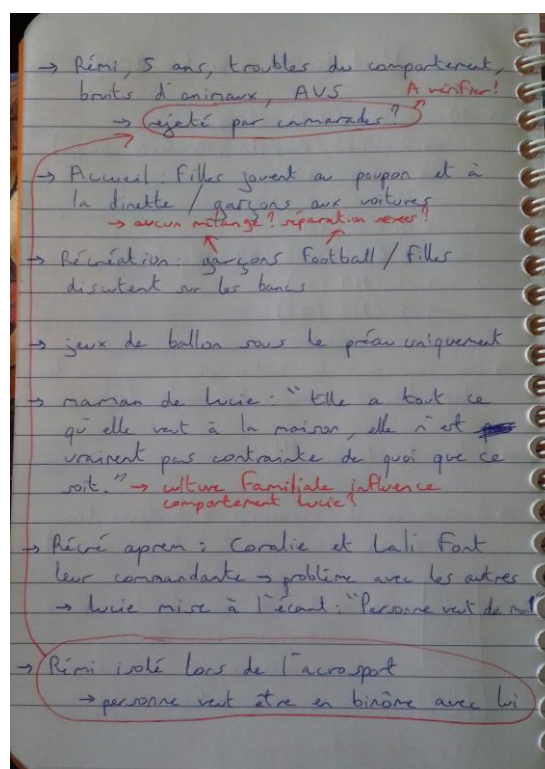 → Rémi, 5 ans, troubles du comportement,
bruits d'animaux, AVS A vérifier!
→ rejeté par camarades?
→ Accueil: Filles jouent au poupon et à
la dinette / garçons aux voitures
→ aucun mélange? séparation sexes?
→ Récréation: garçons Football / Filles
discutent sur les bancs
→ jeux de ballon sous le préau uniquement
→ maman de Lucie: "Elle a tout ce
qu'elle veut à la maison, elle n'est
vraiment pas contrainte de quoi que ce
soit." → culture Familiale influence
comportement Lucie?
→ Récré aprem: Coralie et Lali Font
leur commandante → problème avec les autres
→ Lucie mise à l'écart: "Personne veut de moi"
→ Rémi isolé lors de l'acrosport
→ personne veut être en binôme avec lui